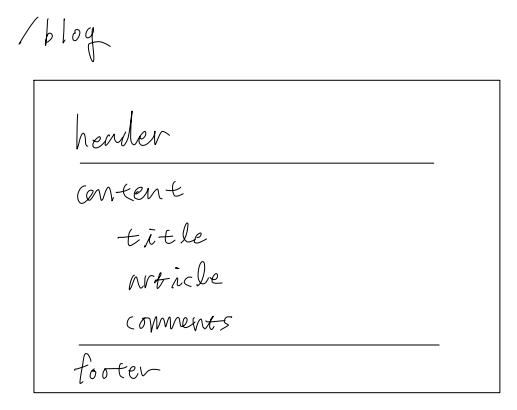 /blog
header
content
title
article
comments
footer